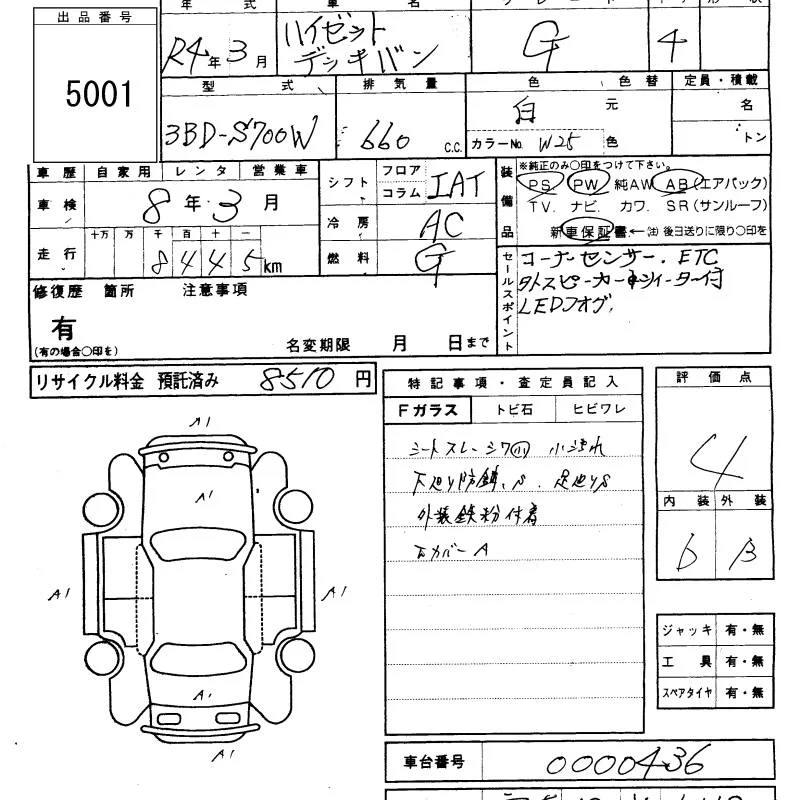 年 式 車 名 グレード ドア 形 状
出品番号
5001
R4年3月 ハイゼット デッキバン G 4
型 式 排気量 色 色替 定員・積載
3BD-S700W 660 c.c. 白 元 名
カラーNo. W25 色 トン
車歴 自家用 レンタ 営業車
車検 8年3月
走行 十万 万 千 百 十 一
8445km
シフト フロア コラム IAT
冷房 AC
燃料 G
装備品 ※純正のみ○印をつけて下さい。
PS. PW 純AW AB(エアバック)
TV. ナビ. カワ. SR(サンルーフ)
新車保証書←㊟後日送りに限り○印を
セールスポイント
コーナーセンサー. ETC
外スピーカー
LEDフォグ.
修復歴 箇所 注意事項
有
(有の場合○印を)
名変期限 月 日まで
リサイクル料金 預託済み 8510円
特記事項・査定員記入
Fガラス トビ石 ヒビワレ
シートスレ・シワ㊥小 小汚れ
下廻り防錆.S. 足廻りS
外装鉄粉付着
下カバーA
評価点
4
内装 外装
b B
ジャッキ 有・無
工具 有・無
スペアタイヤ 有・無
A1
A1
A1
A1
A1
A1
車台番号 0000436